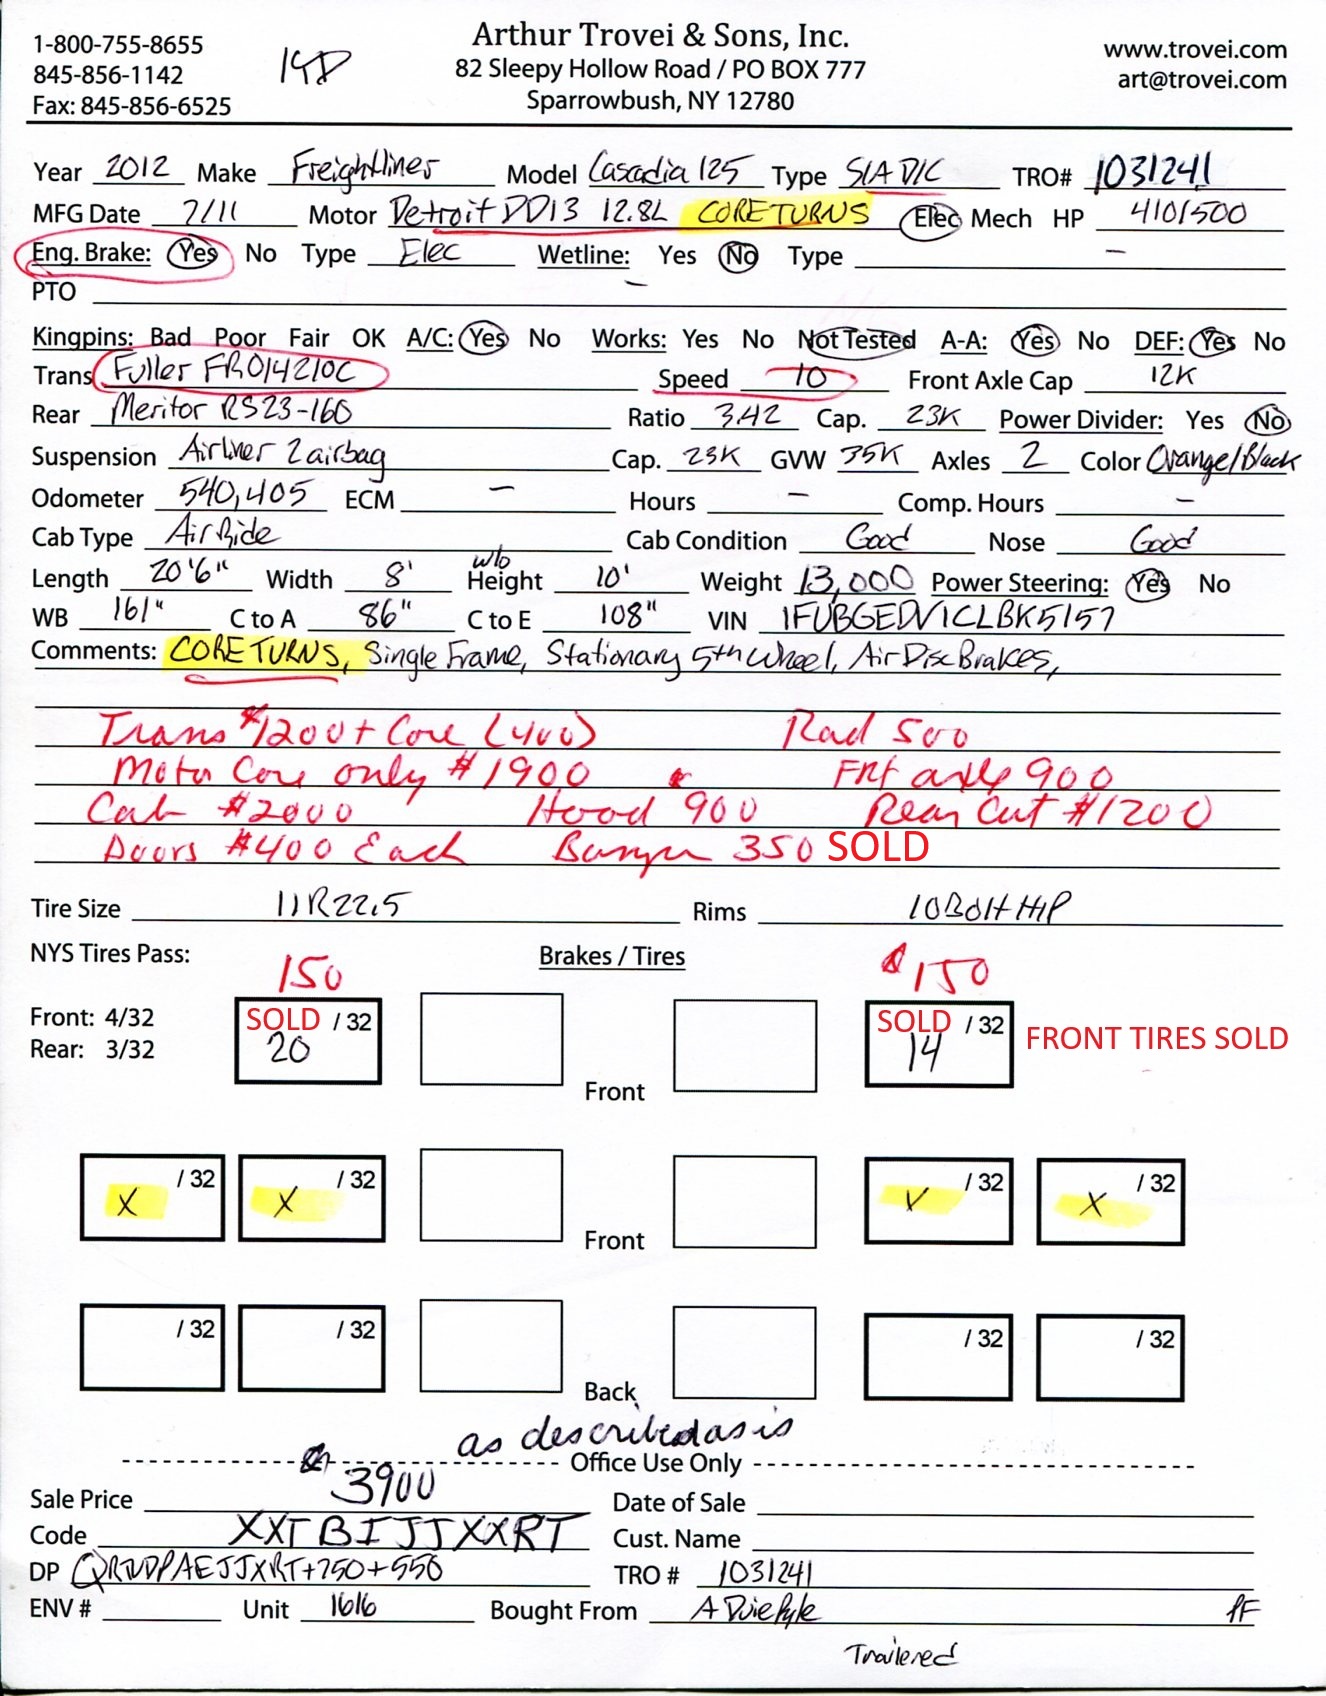 Arthur Trovei & Sons, Inc.
1-800-755-8655
82 Sleepy Hollow Road / PO BOX 777
www.trovei.com
845-856-1142
Sparrowbush, NY 12780
art@trovei.com
Fax: 845-856-6525
Year 2012 Make Freightliner Model Cascadia 125 Type S/A D/C TRO# 1031241
MFG Date 7/11 Motor Detroit DD13 12.8L CORE TURNS Elec Mech HP 410/500
Eng. Brake: Yes No Type Elec Wetline: Yes No Type —
PTO —
Kingpins: Bad Poor Fair OK A/C: Yes No Works: Yes No Not Tested A-A: Yes No DEF: Yes No
Trans Fuller FRO14210C Speed 10 Front Axle Cap 12K
Rear Meritor RS23-160 Ratio 3.42 Cap. 23K Power Divider: Yes No
Suspension Airliner 2 airbag Cap. 23K GVW 35K Axles 2 Color Orange/Black
Odometer 540,405 ECM — Hours — Comp. Hours —
Cab Type Air Ride Cab Condition Good Nose Good
Length 20'6" Width 8' w/o Height 10' Weight 13,000 Power Steering: Yes No
WB 161" C to A 86" C to E 108" VIN 1FUBGEDV1CLBK5157
Comments: CORE TURNS, Single Frame, Stationary 5th Wheel, Air Disc Brakes,
Trans $1200 + Core (400) Rad 500
Motor Core only #1900 Frt axle 900
Cab #2000 Hood 900 Rear Cut #1200
Doors #400 Each Bumper 350 SOLD
Tire Size 11R22.5 Rims 10 Bolt HP
NYS Tires Pass: Brakes / Tires
150 $150
Front: 4/32 SOLD /32 SOLD /32 FRONT TIRES SOLD
Rear: 3/32 20 14
Front
/32 /32 /32 /32
X X X X
Front
/32 /32 /32 /32
Back
as described as is
Office Use Only
Sale Price 3900 Date of Sale
Code XXTBIJJXXRT Cust. Name
DP +750+550 TRO # 1031241
ENV # Unit 1616 Bought From A Duie Pyle PF
Trailered